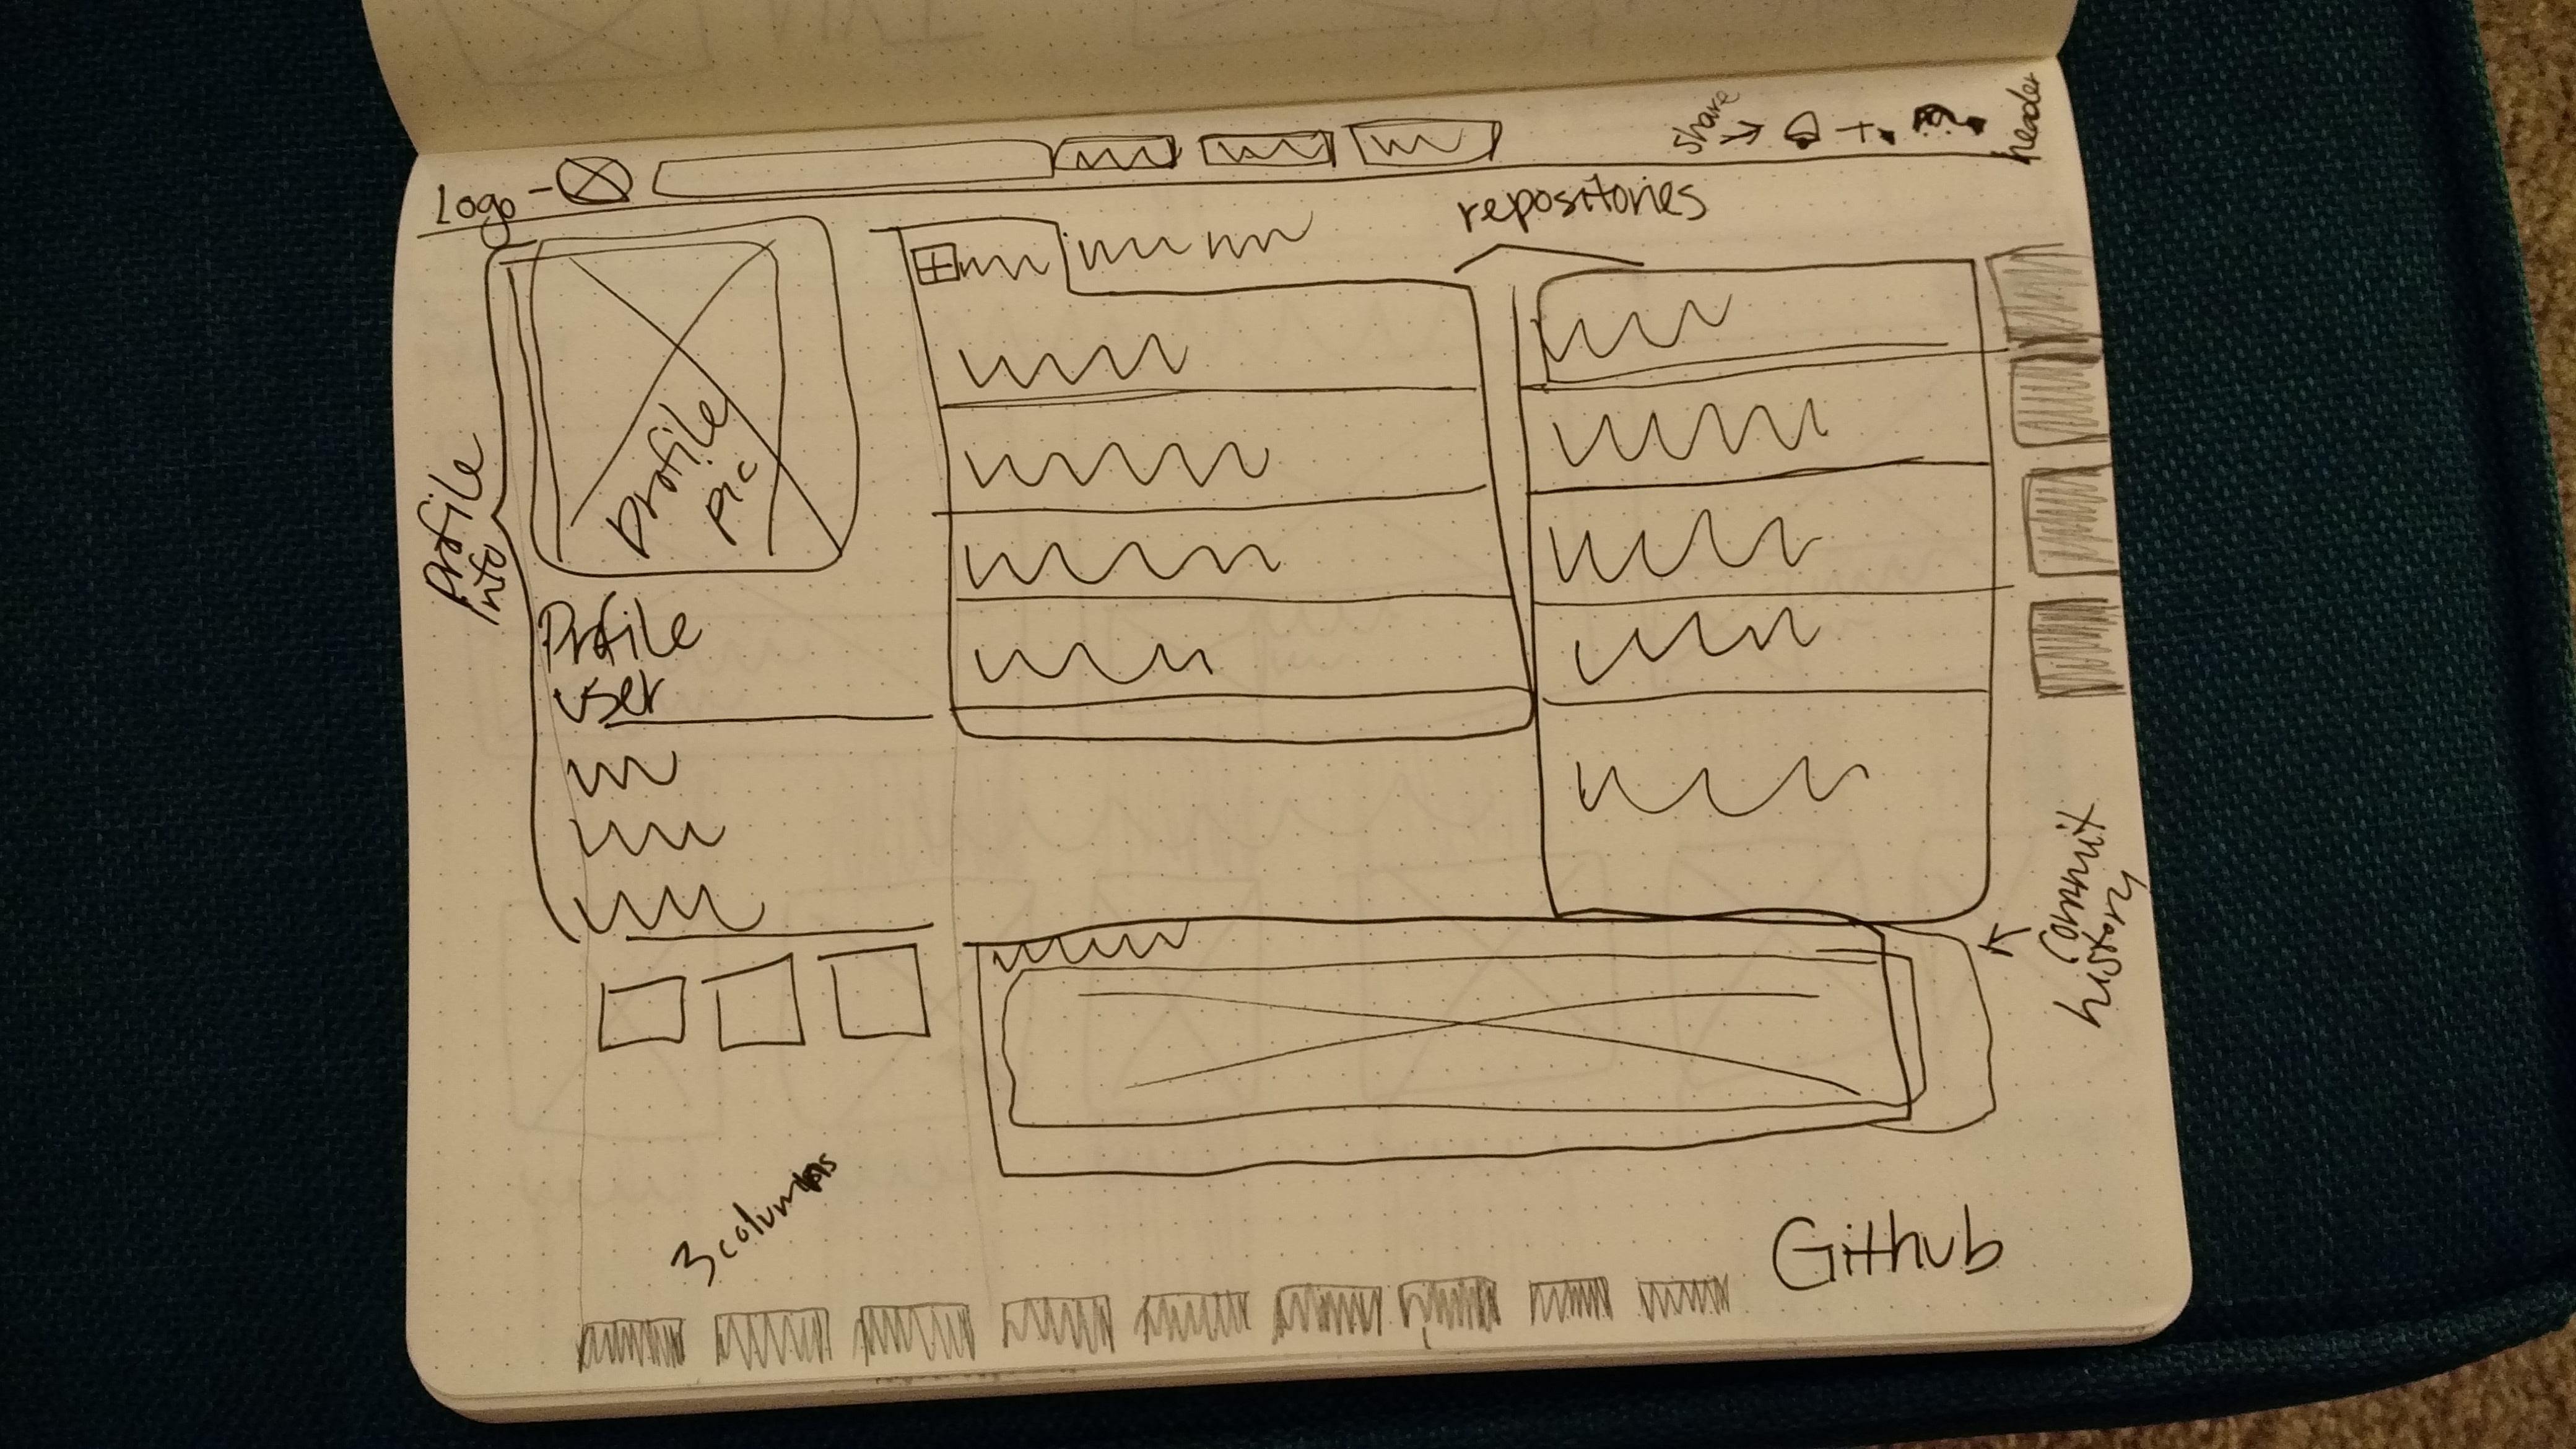 Logo
share
header
repositories
Profile
info
Profile
pic
Profile
user
Commit
history
3 columns
Github